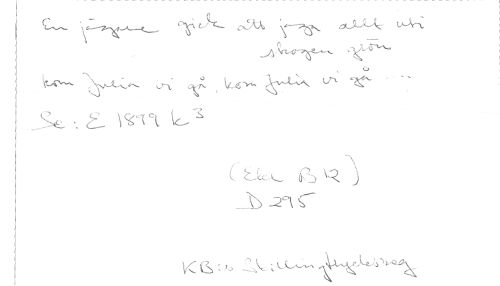 En jägare gick att jaga allt uti
skogen grön
kom Julia vi gå, kom Julia vi gå ...
Se: E 1899 k³
(Ekl B 12)
D 295
KB:s Skillingtryckssaml